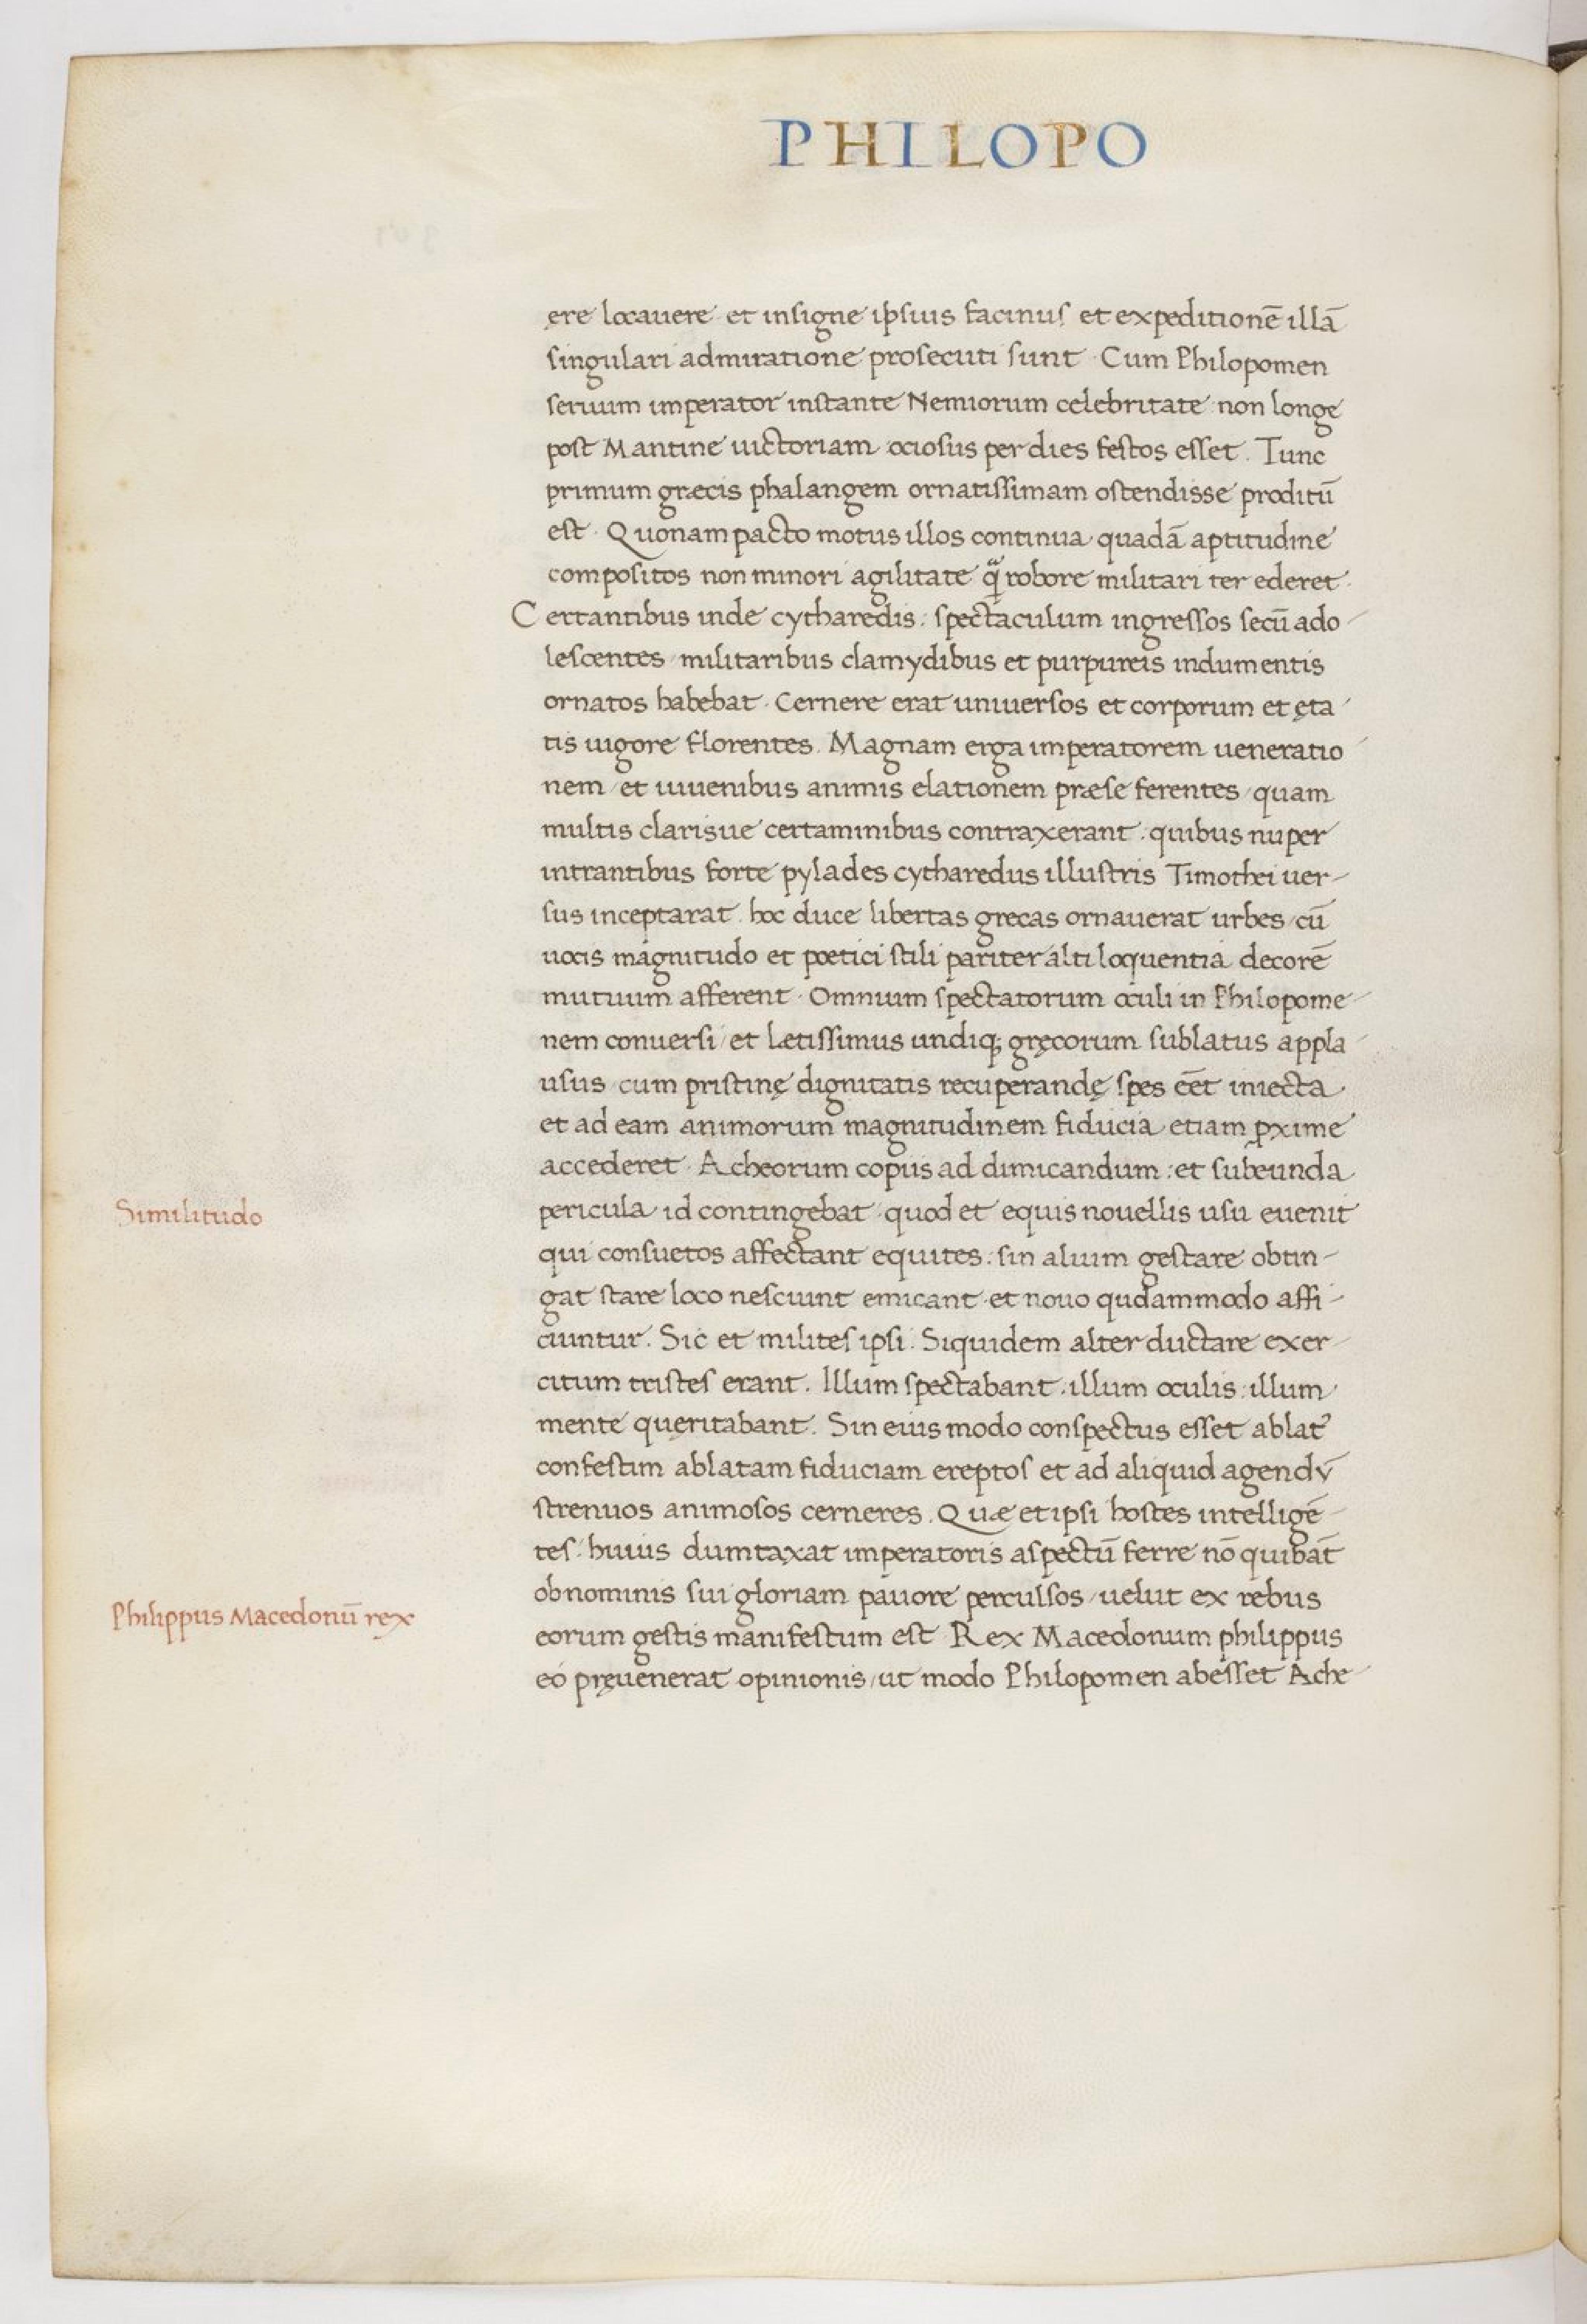 PHILOPO
ere locauere et insigne ipsius facinus et expeditionē illā
singulari admiratione prosecuti sunt · Cum Philopomen
seruum imperator instante Nemiorum celebritate non longe
post Mantine uictoriam ociosus per dies festos esset . Tunc
primum græcis phalangem ornatissimam ostendisse proditū
est · Quonam pacto motus illos continua quadā aptitudine
compositos non minori agilitate q̃ robore militari ter ederet ·
Certantibus inde cytharedis : spectaculum ingressos secū ado-
lescentes / militaribus clamydibus et purpureis indumentis
ornatos habebat · Cernere erat uniuersos et corporum et ęta-
tis uigore florentes . Magnam erga imperatorem ueneratio-
nem / et iuuenibus animis elationem præse ferentes / quam
multis clarisue certaminibus contraxerant · quibus nuper
intrantibus forte pylades cytharedus illustris Timothei uer-
sus inceptarat · hoc duce libertas grecas ornauerat urbes / cū
uocis magnitudo et poetici stili pariter alti loquentia decorē
mutuum afferent · Omnium spectatorum oculi in Philopome-
nem conuersi / et lætissimus undiq; gręcorum sublatus appla-
usus cum pristinę dignitatis recuperandę spes eēt iniecta
et ad eam animorum magnitudinem fiducia etiam ꝓxime
accederet · Acheorum copiis ad dimicandum : et subeunda
Similitudo
pericula id contingebat quod et equis nouellis usu euenit
qui consuetos affectant equites : sin alium gestare obtin-
gat stare loco nesciunt emicant et nouo qudammodo affi-
ciuntur . Sic et milites ipsi . Siquidem alter ductare exer-
citum tristes erant . Illum spectabant · illum oculis : illum
mente queritabant . Sin eius modo conspectus esset ablat᾿
confestim ablatam fiduciam ereptos et ad aliquid agendū
strenuos animosos cerneres . Quæ et ipsi hostes intelligē-
tes : huius dumtaxat imperatoris aspectū ferre nō quibāt
ob nominis sui gloriam pauore perculsos / uelut ex rebus
Philippus Macedonū rex
eorum gestis manifestum est Rex Macedonum philippus
eo pręuenerat opinionis / ut modo Philopomen abesset Ache-